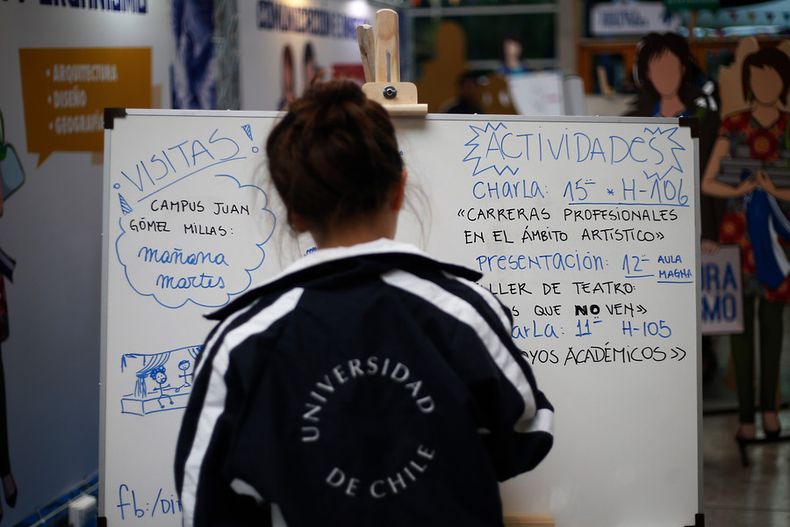 · ARQUITECTURA
· DISEÑO
· GEOGRAFÍA
¡VISITAS!
CAMPUS JUAN
GÓMEZ MILLAS:
mañana
martes
fb:/Dir
ACTIVIDADES
CHARLA: 15:- * H-106
«CARRERAS PROFESIONALES
EN EL ÁMBITO ARTÍSTICO»
PRESENTACIÓN: 12:- AULA MAGNA
DE TEATRO:
QUE NO VEN»
CHARLA: 11:- H-105
ACADÉMICOS»
UNIVERSIDAD
DE CHILE